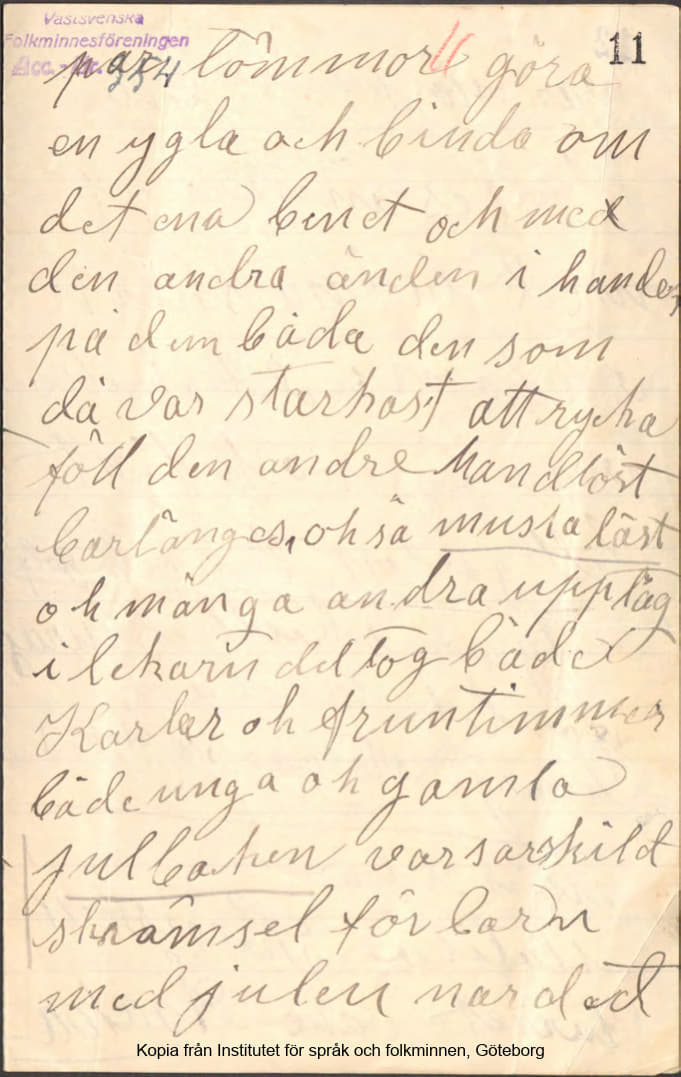 Västsvenska
Folkminnesföreningen
Acc. Nr. 334
11
par tömmor 11 göra
en ygla och binda om
det ena benet och med
den andra änden i handen
på dem båda den som
då var starkast att rycka
föll den andre handlöst
barlänges, oh så muska låst
oh många andra upptåg
i lekarn deltog både
Karlar oh fruntimmer
både unga oh gamla
julbaken var särskild
skrämsel för barn
med julen nar det
Kopia från Institutet för språk och folkminnen, Göteborg